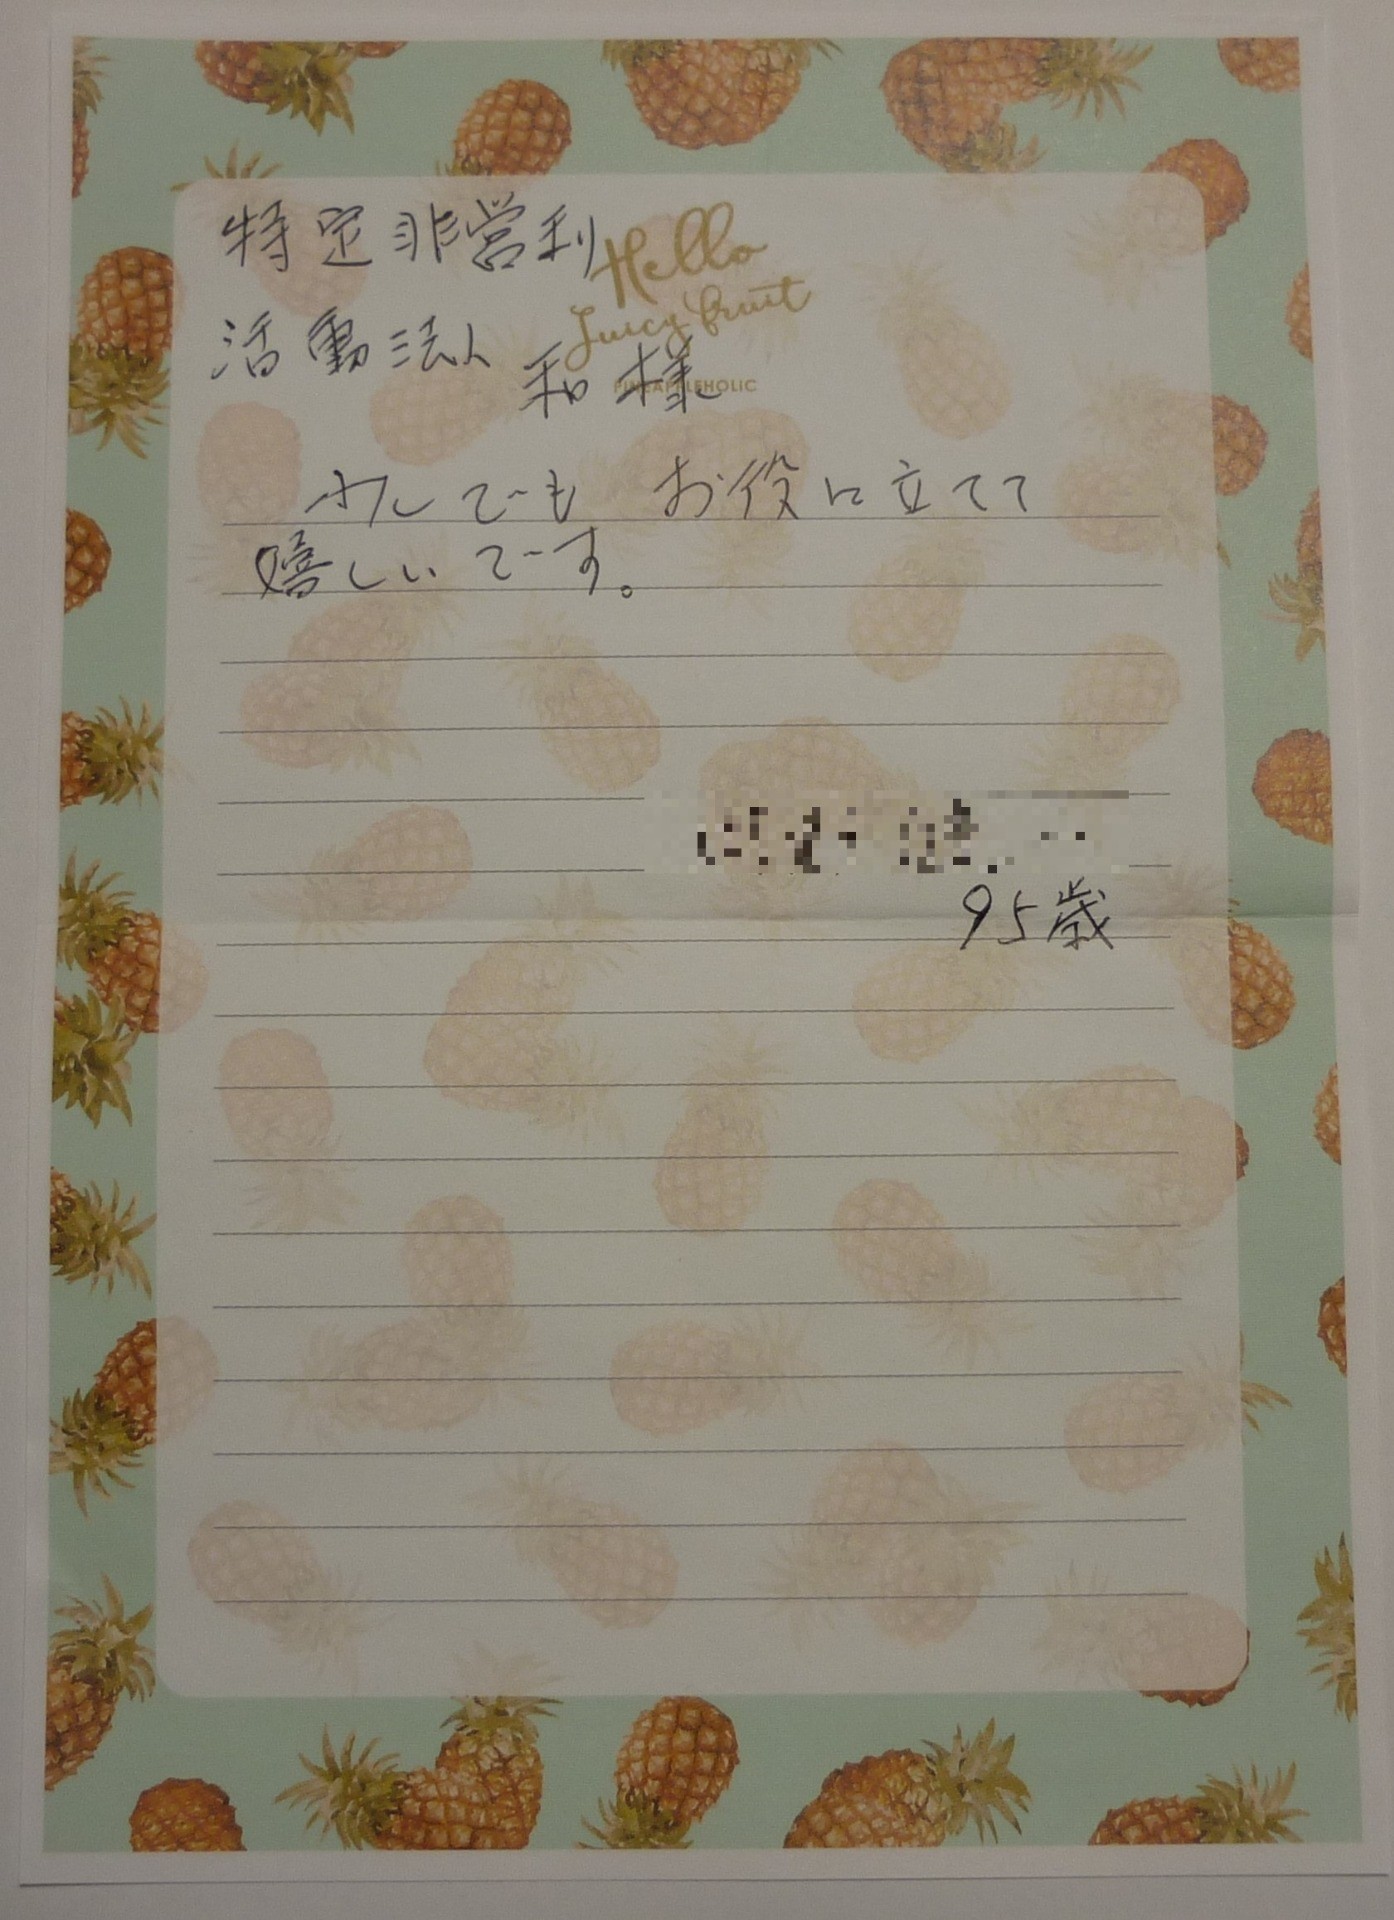 特定非営利
Hello
Juicy fruit
活動法人 和 様
PINEAPPLEHOLIC
少しでも お役に立てて
嬉しいです。
95歳